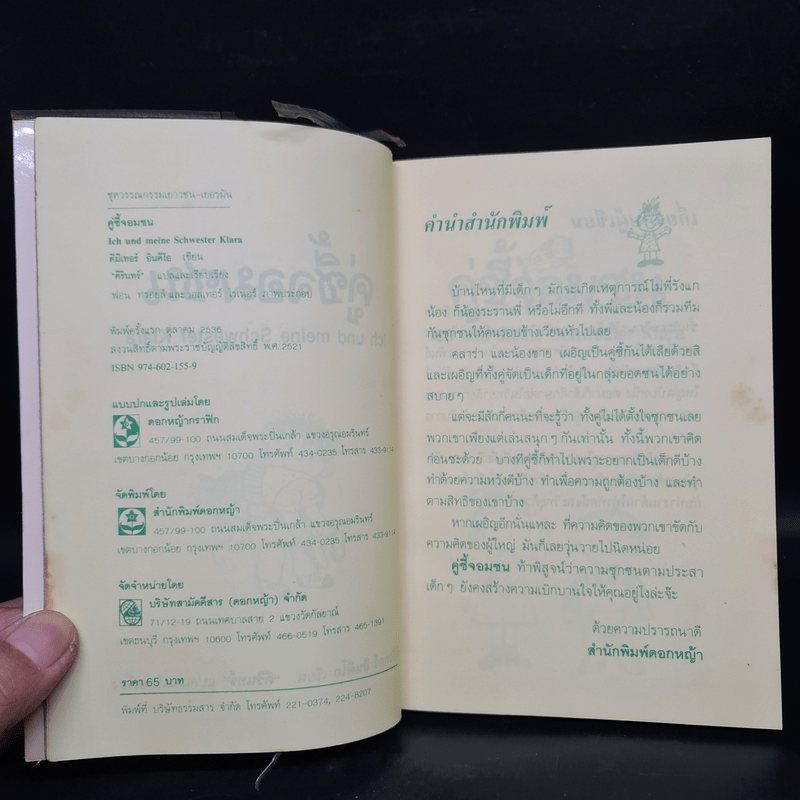 ชุดวรรณกรรมเยาวชน-เยอรมัน
คู่ซี้จอมซน
Ich und meine Schwester Klara
ดิมิเทอร์ อินคิโอ เขียน
"คิรินทร์" แปลและเรียบเรียง
ฟอน ทรอยล์ และวอลเทอร์ ไรเนอร์ ภาพประกอบ
พิมพ์ครั้งแรก ตุลาคม 2536
สงวนสิทธิ์ตามพระราชบัญญัติลิขสิทธิ์ พ.ศ.2521
ISBN 974-602-155-9
แบบปกและรูปเล่มโดย
ดอกหญ้ากราฟิก
457/99-100 ถนนสมเด็จพระปิ่นเกล้า แขวงอรุณอมรินทร์
เขตบางกอกน้อย กรุงเทพฯ 10700 โทรศัพท์ 434-0235 โทรสาร 433-9114
จัดพิมพ์โดย
สำนักพิมพ์ดอกหญ้า
457/99-100 ถนนสมเด็จพระปิ่นเกล้า แขวงอรุณอมรินทร์
เขตบางกอกน้อย กรุงเทพฯ 10700 โทรศัพท์ 434-0235 โทรสาร 433-9114
จัดจำหน่ายโดย
บริษัทสามัคคีสาร (ดอกหญ้า) จำกัด
71/12-19 ถนนเทศบาลสาย 2 แขวงวัดกัลยาณ์
เขตธนบุรี กรุงเทพฯ 10600 โทรศัพท์ 466-0519 โทรสาร 465-1391
ราคา 65 บาท
พิมพ์ที่ บริษัทธรรมสาร จำกัด โทรศัพท์ 221-0374, 224-8207
คำนำสำนักพิมพ์
บ้านไหนที่มีเด็กๆ มักจะเกิดเหตุการณ์ไม่พี่รังแก
น้อง ก็น้องระรานพี่ หรือไม่อีกที ทั้งพี่และน้องก็รวมทีม
กันซุกซนให้คนรอบข้างเวียนหัวไปเลย
คลาร่า และน้องชาย เผอิญเป็นคู่ซี้กันได้เสียด้วยสิ
และเผอิญที่ทั้งคู่จัดเป็นเด็กที่อยู่ในกลุ่มยอดซนได้อย่าง
สบายๆ
แต่จะมีสักกี่คนนะที่จะรู้ว่า ทั้งคู่ไม่ได้ตั้งใจซุกซนเลย
พวกเขาเพียงแต่เล่นสนุกๆ กันเท่านั้น ทั้งนี้พวกเขาคิด
ก่อนซะด้วย บางทีคู่ซี้ก็ทำไปเพราะอยากเป็นเด็กดีบ้าง
ทำด้วยความหวังดีบ้าง ทำเพื่อความถูกต้องบ้าง และทำ
ตามสิทธิของเขาบ้าง
หากเผอิญอีกนั่นแหละ ที่ความคิดของพวกเขาขัดกับ
ความคิดของผู้ใหญ่ มันก็เลยวุ่นวายไปนิดหน่อย
คู่ซี้จอมซน ท้าพิสูจน์ว่าความซุกซนตามประสา
เด็กๆ ยังคงสร้างความเบิกบานใจให้คุณอยู่ไงล่ะจ๊ะ
ด้วยความปรารถนาดี
สำนักพิมพ์ดอกหญ้า